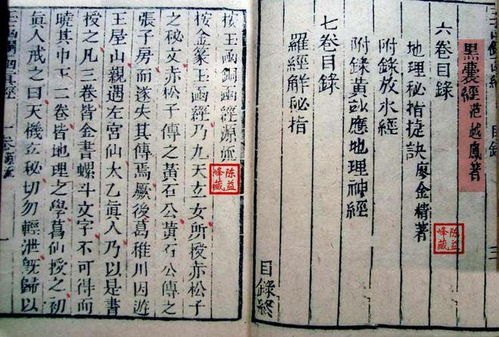 黑囊經范越鳳著
六卷目錄
地理秘指捷訣廖金精著
附錄放水經
附錄黃訟應地理神經
七卷目錄
羅經解秘指
目錄終
陈益峰藏
按玉函銅函經源流
按金篆玉函經乃九天玄女所授赤松子
之秘文赤松子傳之黃石公黃石公傳之
張子房而遂失其傳焉厥後葛稚川因遊
王屋山親遇左宮仙太乙眞人乃以是書
授之凡三卷皆金書螺斗文字不可得而
曉其中下二卷皆地理之學葛仙授之初
眞人戒之曰天機玄秘切勿輕泄旣歸以
陈益峰藏